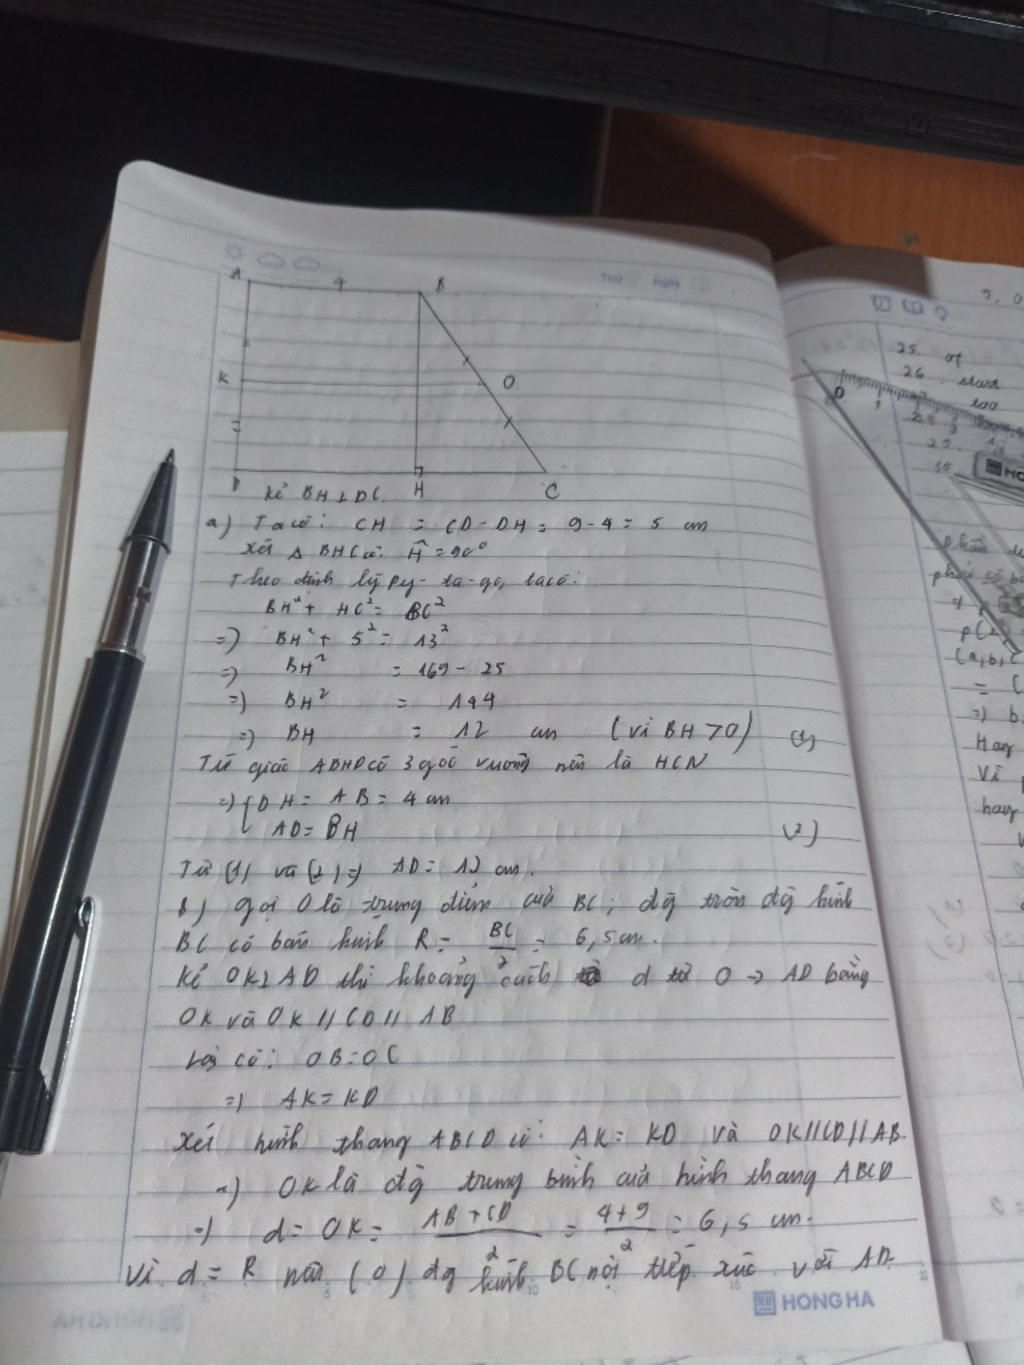 A 4 B
K O
D H C
Kẻ BH ⊥ DC
a) Ta có: CH = CD - DH = 9 - 4 = 5 cm
Xét Δ BHC có: Ĥ = 90°
Theo định lý Py-ta-go, ta có:
BH² + HC² = BC²
=> BH² + 5² = 13²
=> BH² = 169 - 25
=> BH² = 144
=> BH = 12 cm (vì BH > 0) (1)
Tứ giác ABHD có 3 góc vuông nên là HCN
=> { DH = AB = 4 cm
AD = BH (2)
Từ (1) và (2) => AD = 12 cm.
b) Gọi O là trung điểm của BC; đg tròn đg kính
BC có bán kính R = BC/2 = 6,5 cm.
Kẻ OK ⊥ AD thì khoảng cách d từ O -> AD bằng
OK và OK // CD // AB
Lại có: OB = OC
=> AK = KD
Xét hình thang ABCD có: AK = KD và OK // CD // AB
=> OK là đg trung bình của hình thang ABCD
=> d = OK = (AB + CD)/2 = (4 + 9)/2 = 6,5 cm.
Vì d = R nên (O) đg kính BC tiếp xúc với AD.
HONG HA
Thứ Ngày
25. of
26. start
too
0 1
HONG